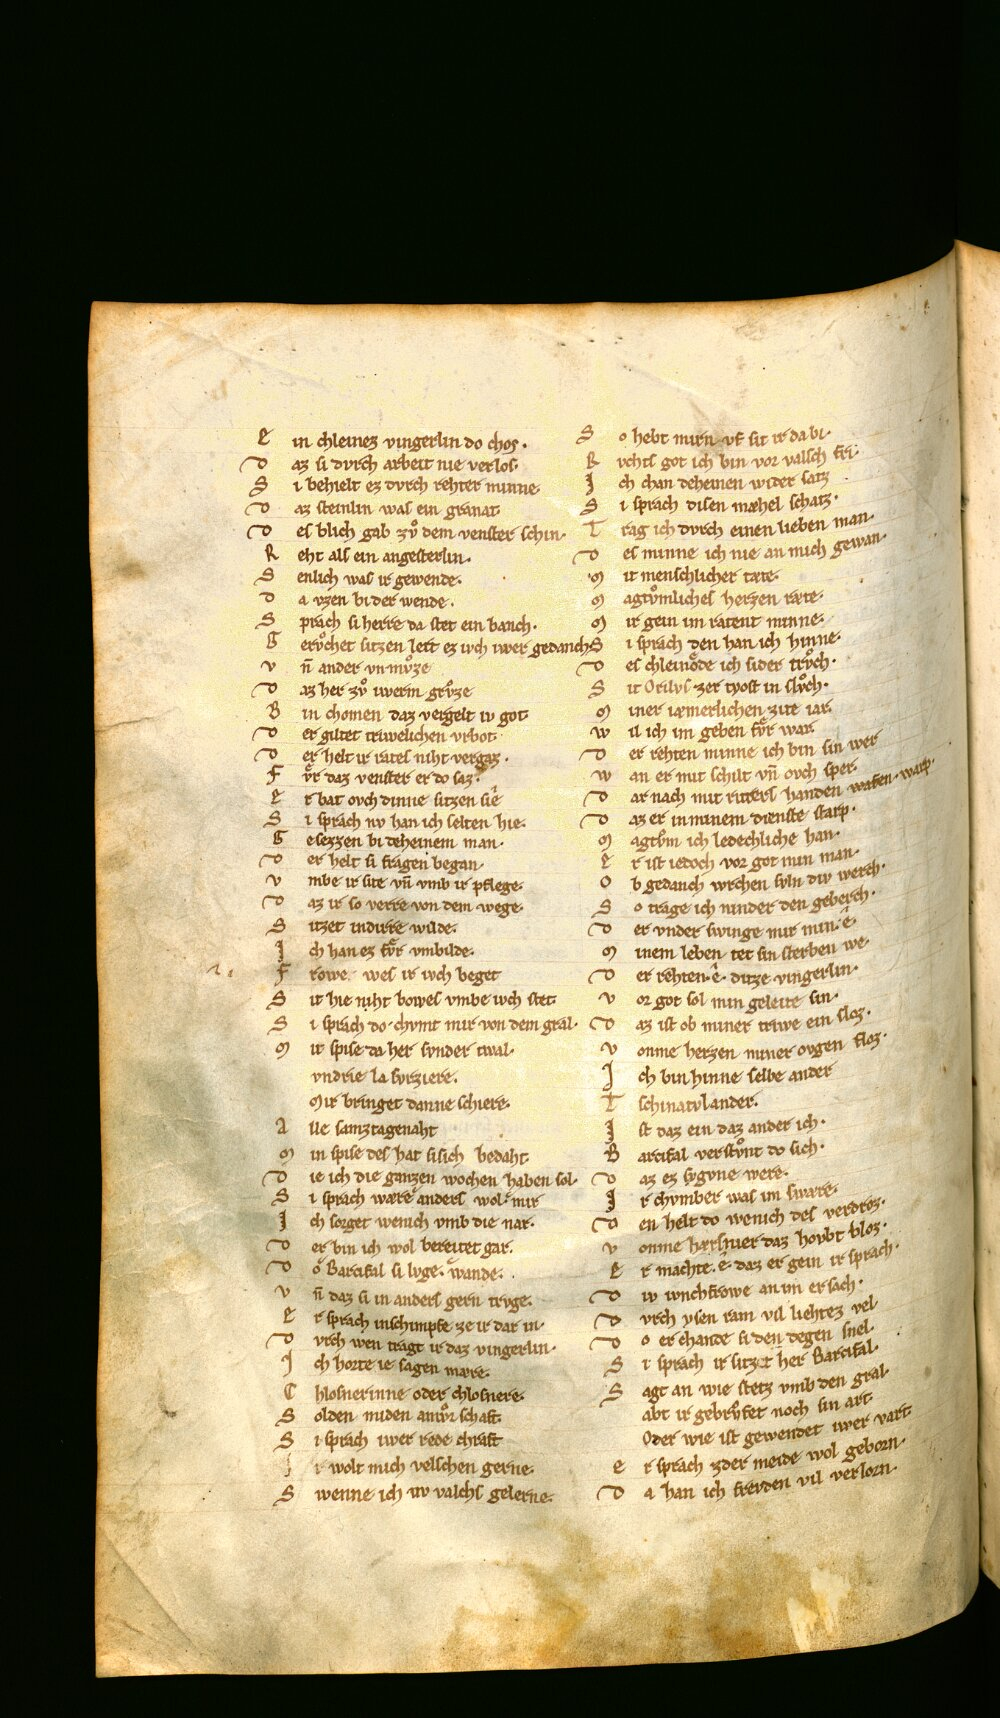 E in chleinez vingerlin do chos.
D az si dvrch arbeit nie verlos.
S i behielt ez dvrch rehter minne
D az steinlin was ein granat
D es blich gab zvͦ dem venster schin.
R eht als ein angesterlin.
S enlich was ir gewende.
D a vzen bi der wende.
S prach si herre da stet ein banch.
G ervͦchet sitzen lert ez iwch iwer gedanch
V n̄ ander vnmvͦze
D az her zvͦ iwerm grvͦze
B in chomen daz vergelt iv got
D er giltet triwelichen vrbot.
D er helt ir rates niht vergaz.
F vͤr daz venster er do saz.
E r bat ovch dinne sitzen sie
S i sprach nv han ich selten hie.
G esezzen bi deheinem man.
D er helt si fragen began.
V mbe ir site vn̄ vmb ir pflege.
D az ir so verre von dem wege.
S itzet in dirre wilde.
J ch han ez fvͤr vmbilde.
F rowe. wes ir iwch beget
S it hie niht bowes vmbe iwch stet.
S i sprach do chvmt mir von dem gral.
M ir spise da her svnder twal.
vndrie la svrziere.
Mir bringet danne schiere.
A lle samztagenaht
M in spise des hat si sich bedaht.
D ie ich die ganzen wochen haben sol.
S i sprach wære anders wol mir
J ch sorget wenich vmb die nar.
D er bin ich wol bereitet gar.
D oͦ Parcifal si lvge. wande.
V n̄ daz si in anders gern trvge.
E r sprach in schimpfe ze ir dar in.
D vrch wen tragt ir daz vingerlin.
J ch horte ie sagen mære.
C hlosnerinne oder chlosnere.
S olden miden amvͦrschaft.
S i sprach iwer rede chraft
J r wolt mich velschen gerne.
S wenne ich nv valchs gelerne.
S o hebt mirn vf sit ir da bi.
R vchts got ich bin vor valsch fri.
J ch chan deheinen wider satz
S i sprach disen mæhel schatz.
T rag ich dvrch einen lieben man.
D es minne ich nie an mich gewan.
M it menschlicher tæte.
M agtvͦmliches herzen ræte.
M ir gein im ratent minne.
S i sprach den han ich hinne.
D es chleinode ich sider trvͦch.
S it Orilvs zer tyost in slvͦch.
M iner iæmerlichen zite iar.
W il ich im geben fvͤr war.
D er rehten minne ich bin sin wer
W an er mit schilt vn̄ ovch sper.
D ar nach mit ritters handen wafen. warp.
D az er in minem dienste starp.
M agtvͦm ich ledechliche han.
E r ist iedoch vor got min man.
O b gedanch wrchen svln div werch.
S o trage ich ninder den geberch.
D er vnder swinge mir min ê.
M inem leben tet sin sterben we.
D er rehten ê. ditze vingerlin.
V or got sol min geleite sin.
D az ist ob miner triwe ein sloz.
V onme herzen miner ovgen floz.
J ch bin hinne selbe ander
T schinatvlander.
J st daz ein daz ander ich.
P arcifal verstvͦnt do sich.
D az ez sygvne were.
J r chvmber was im sware.
D en helt do wenich des verdroz.
V onme hærsnier daz hovbt bloz.
E r machte. ê. daz er gein ir sprach.
D iv ivnchfrowe an im ersach.
D vrch ysen ram vil liehtez vel
D o erchande si den degen snel.
S i sprach ir sitzet her Parcifal.
S agt an wie stetz vmb den gral
abt ir geprvͤfet noch sin art.
Oder wie ist gewendet iwer vart.
E r sprach zder meide wol geborn.
D a han ich frevden vil verlorn.